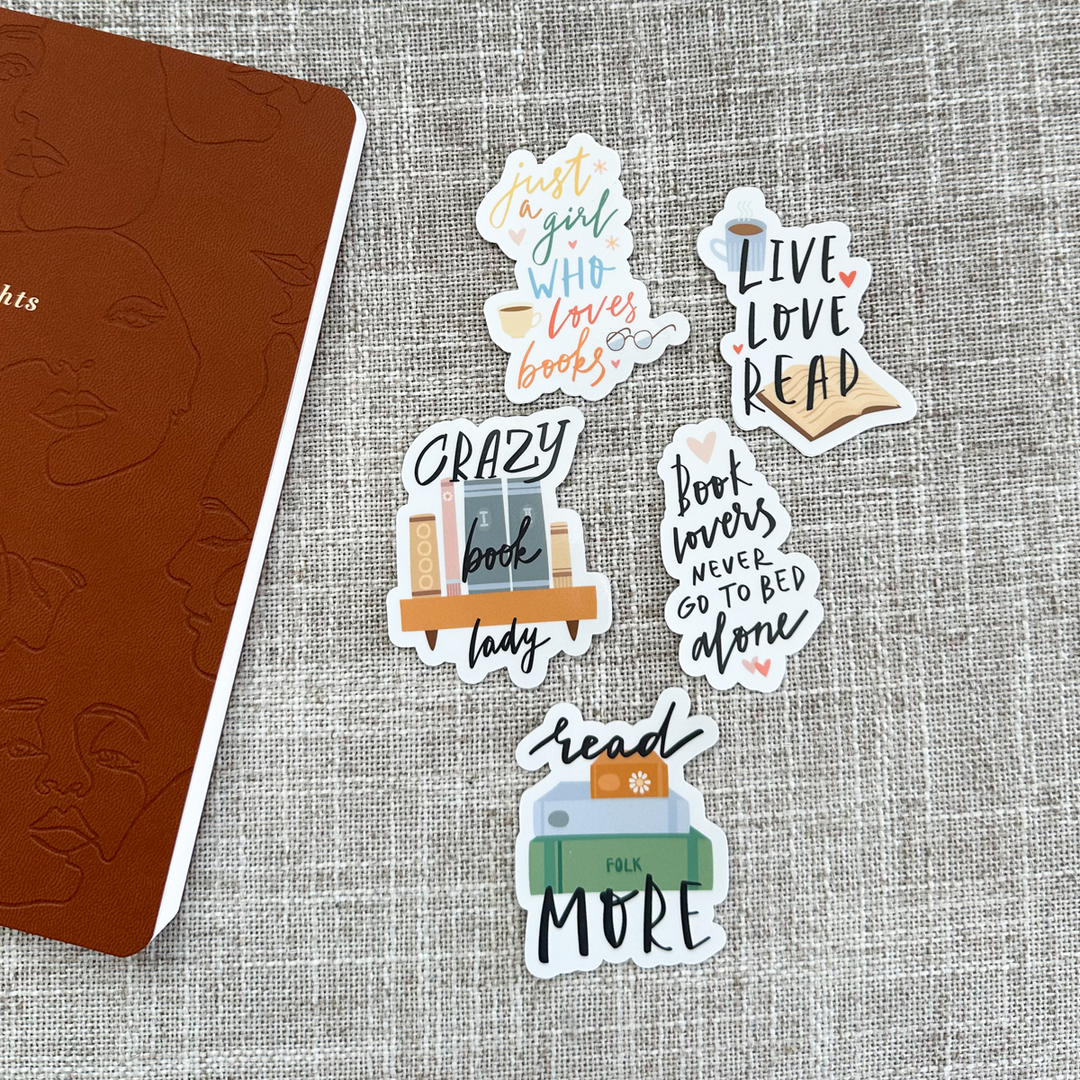 hts
just
a girl
WHO
loves
books
LIVE
LOVE
READ
CRAZY
book
lady
Book
lovers
NEVER
GO TO BED
alone
read
FOLK
MORE